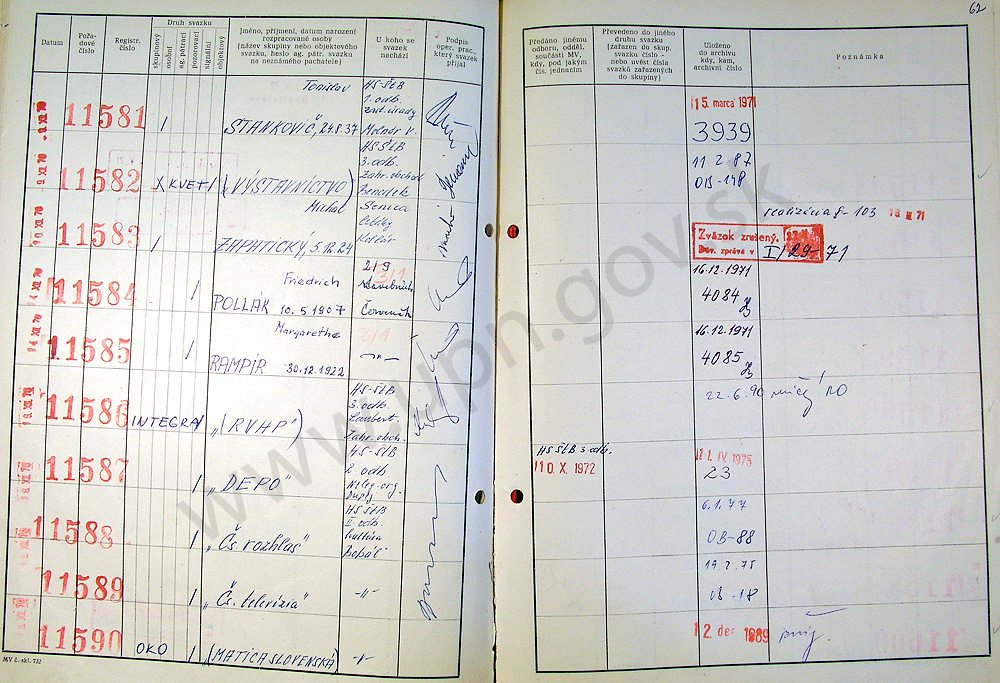 62
Datum
Pořadové číslo
Registr. číslo
Druh svazku
skupinový
osobní
ag. pátrací
pozorovací
signální
objektový
Jméno, příjmení, datum narození
rozpracované osoby
(název skupiny nebo objektového
svazku, heslo ag. pátr. svazku
na neznámého pachatele)
U koho se
svazek
nachází
Podpis
oper. prac.
který svazek
přijal
Předáno jinému
odboru, odděl.
součásti MV,
kdy, pod jakým
čís. jednacím
Převedeno do jiného
druhu svazku
(zařazen do skup.
svazku číslo -
nebo uvést čísla
svazků zařazených
do skupiny)
Uloženo
do archivu
kdy, kam,
archivní číslo
Poznámka
9 XII 70
11581
/
Tomislav
STANKOVIČ, 24.8.37
HS-ŠtB
1. odb.
Molnár V.
15. marca 1971
3939
9 XII 70
11582
X KVET /
(VÝSTAVNÍCTVO)
HS ŠtB
3. odb.
Zahr. obchod
Benedek
11 2 87
OB-148
10 XII 70
11583
/
Michal
ZAPATICKÝ, 5.12.24
Senica
realizácia §-103 16 III 71
Zväzok zničený.
Dôv. zpráva v I/29-71
14 XII 70
11584
/
Friedrich
POLLÁK 10.5.1907
2/9
3/1
Červenák
16.12.1971
4084
14 XII 70
11585
/
Margarethe
RAMPÍR 30.12.1922
3/1
-"-
16.12.1971
4085
18 XII 70
11586
INTEGRA /
„(RVHP)
HS-ŠtB
3. odb.
Zahr. obch.
22.6.90 RO
18 XII 70
11587
/
„DEPO"
HS-ŠtB
2 odb
Neleg. org.
HS ŠtB 3 odb.
10. X. 1972
11. IV 1975
23
11588
/
„Čs. rozhlas"
HS ŠtB
II. odb.
kultúra
6.1.77
OB-88
11589
/
„Čs. televízia"
-"-
19.2.75
OB-18
11590
OKO /
(MATICA SLOVENSKÁ)
-"-
12. dec 1989
MV č. skl. 732
www.upn.gov.sk